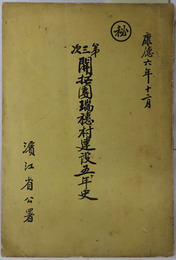 康徳六年十二月
㊙
第三次
開拓團瑞穂村建設五年史
濱江省公署